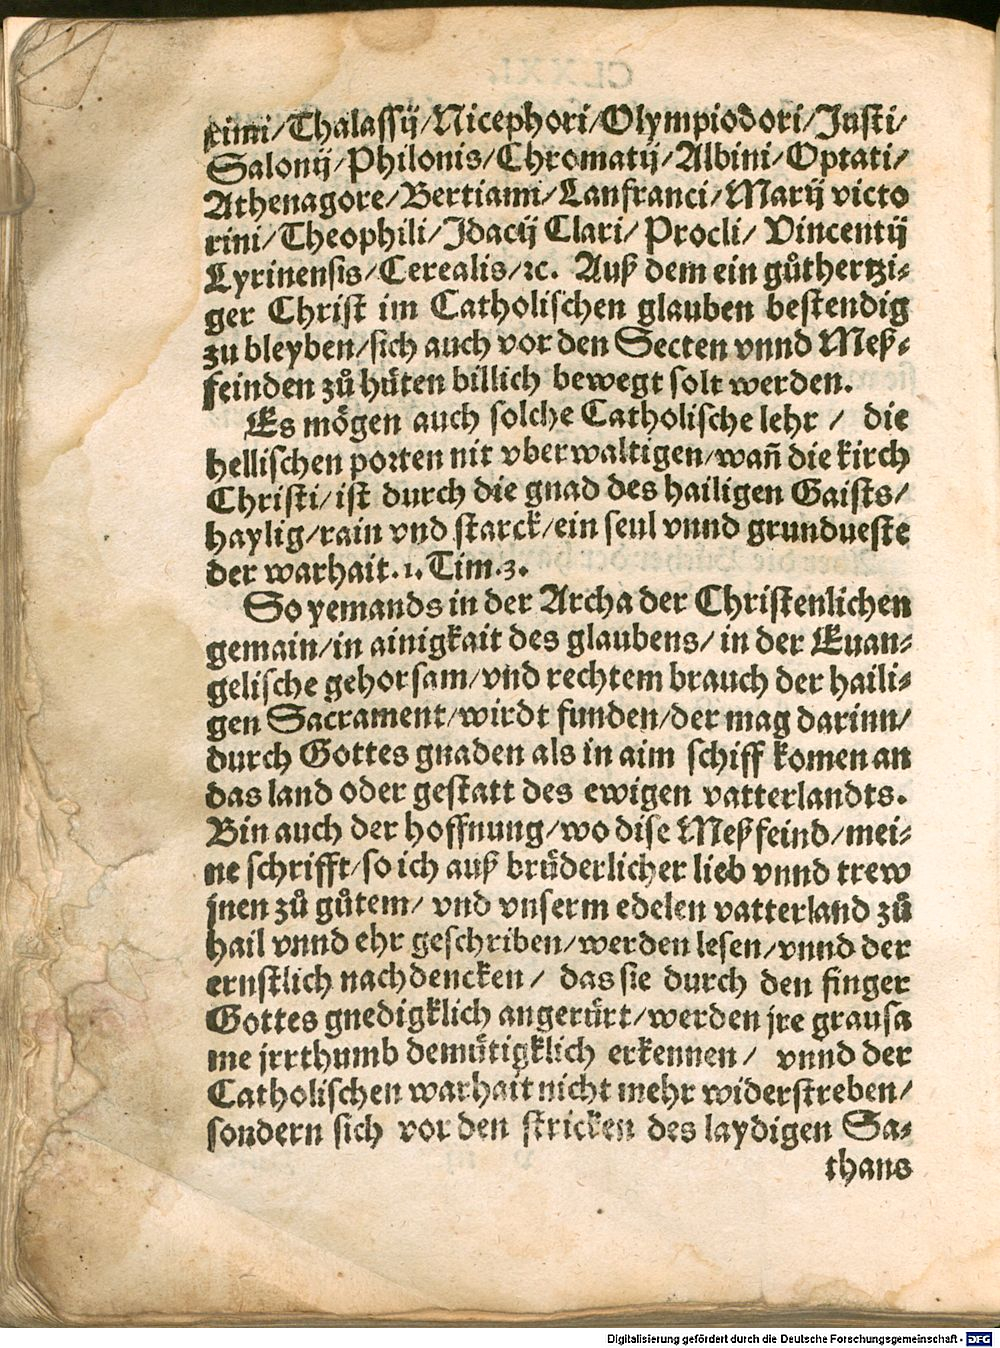 ximi/Thalassij/Nicephori/Olympiodori/Justi/
Salonij/Philonis/Chromatij/Albini/Optati/
Athenagore/Bertiami/Lanfranci/Marij victo
rini/Theophili/Jdacij Clari/ Procli/ Vincentij
Lyrinensis/Cerealis/ꝛc. Auß dem ein gůthertzi⸗
ger Christ im Catholischen glauben bestendig
zu bleyben/sich auch vor den Secten vnnd Meß⸗
feinden zů hüten billich bewegt solt werden.
Es mögen auch solche Catholische lehr / die
hellischen porten nit vberwaltigen/wañ die kirch
Christi/ist durch die gnad des hailigen Gaists/
haylig/rain vnd starck/ein seul vnnd grundueste
der warhait.1.Tim.3.
So yemands in der Archa der Christenlichen
gemain/in ainigkait des glaubens/ in der Euan⸗
gelische gehorsam/vnd rechtem brauch der haili⸗
gen Sacrament/wirdt funden/der mag darinn/
durch Gottes gnaden als in aim schiff komen an
das land oder gestatt des ewigen vatterlandts.
Bin auch der hoffnung/wo dise Meßfeind/mei⸗
ne schrifft/so ich auß brüderlicher lieb vnnd trew
jnen zů gůtem/ vnd vnserm edelen vatterland zů
hail vnnd ehr geschriben/werden lesen/vnnd der
ernstlich nachdencken / das sie durch den finger
Gottes gnedigklich angerürt/werden jre grausa
me jrrthumb demütigklich erkennen / vnnd der
Catholischen warhait nicht mehr widerstreben/
sondern sich vor den stricken des laydigen Sa⸗
thans
Digitalisierung gefördert durch die Deutsche Forschungsgemeinschaft - DFG